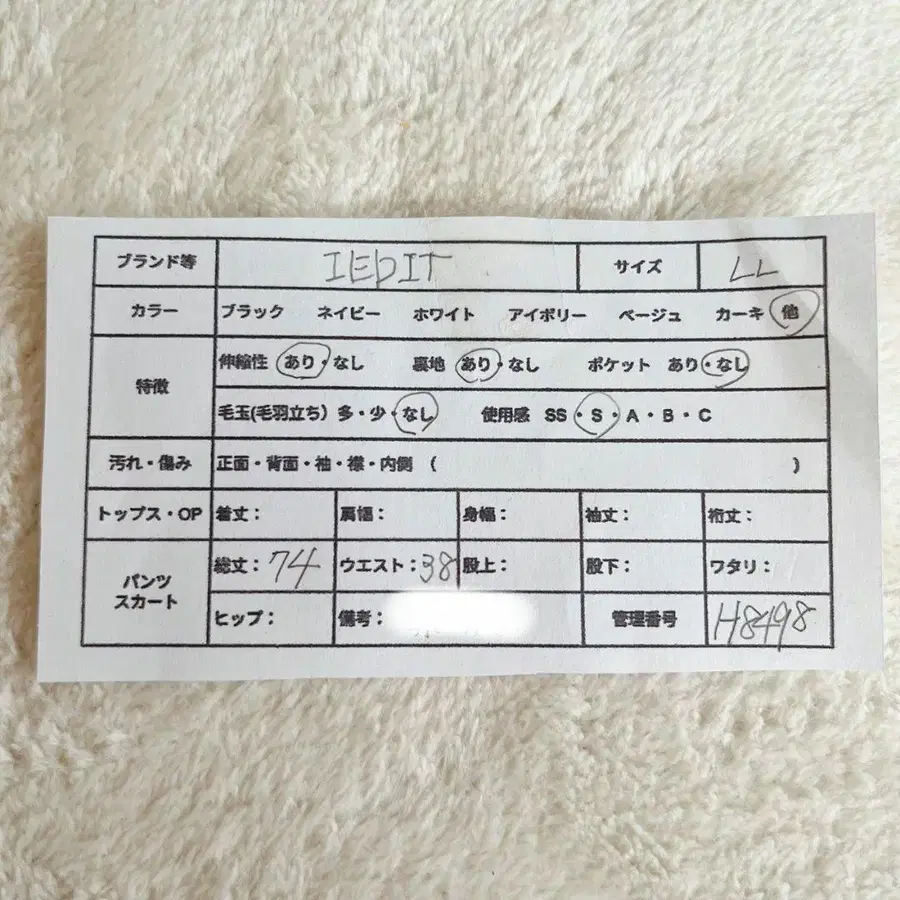 ブランド等 IEDIT サイズ LL
カラー ブラック ネイビー ホワイト アイボリー ベージュ カーキ 他
特徴 伸縮性 あり・なし 裏地 あり・なし ポケット あり・なし
毛玉(毛羽立ち) 多・少・なし 使用感 SS・S・A・B・C
汚れ・傷み 正面・背面・袖・襟・内側 ( )
トップス・OP 着丈: 肩幅: 身幅: 袖丈: 裄丈:
パンツ スカート 総丈:74 ウエスト:38 股上: 股下: ワタリ:
ヒップ: 備考: 管理番号 H8498